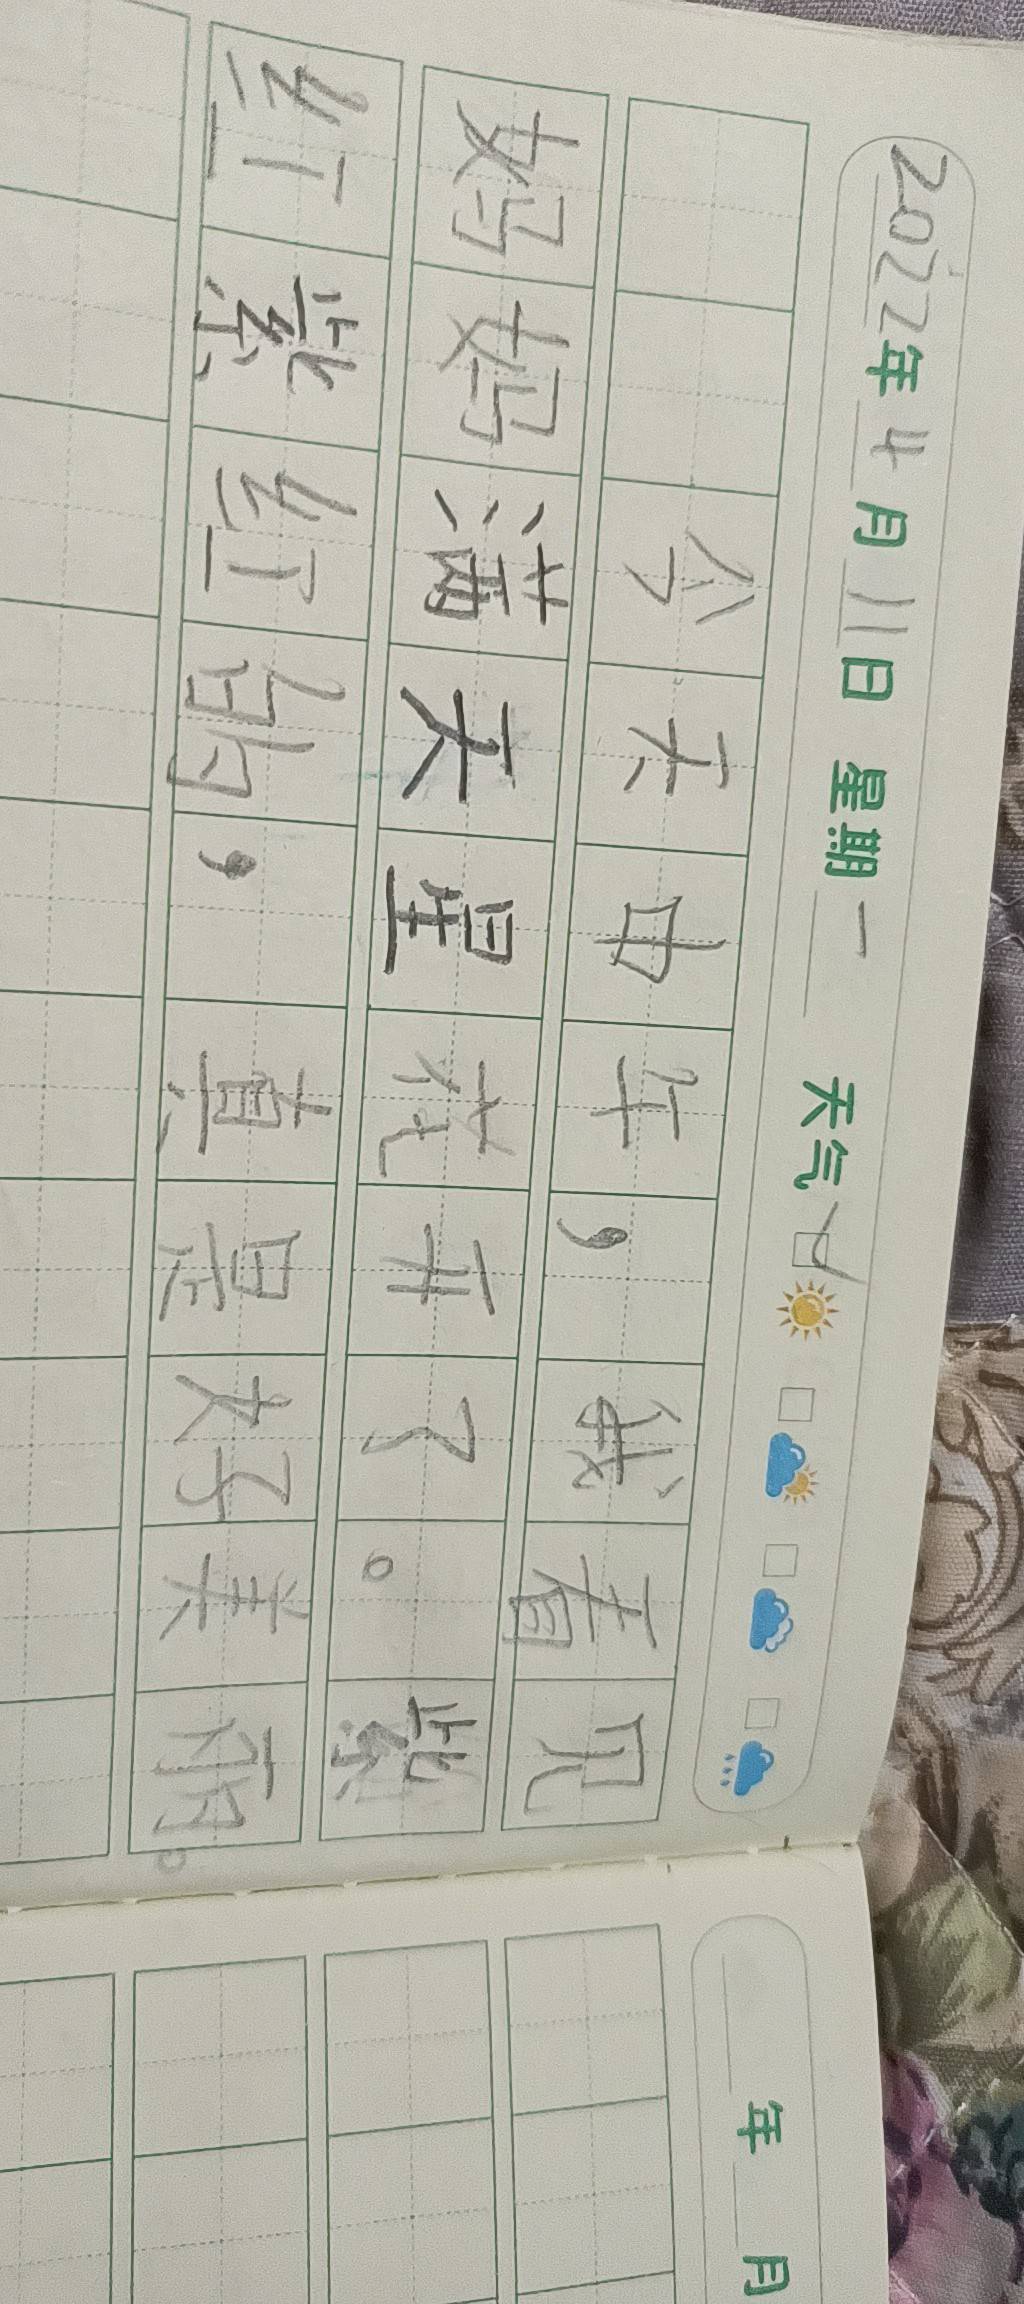 2022年4月11日 星期一 天气
今天中午，我看见
妈妈满天星花开了。紫
红紫红的，真是好美丽。
年 月